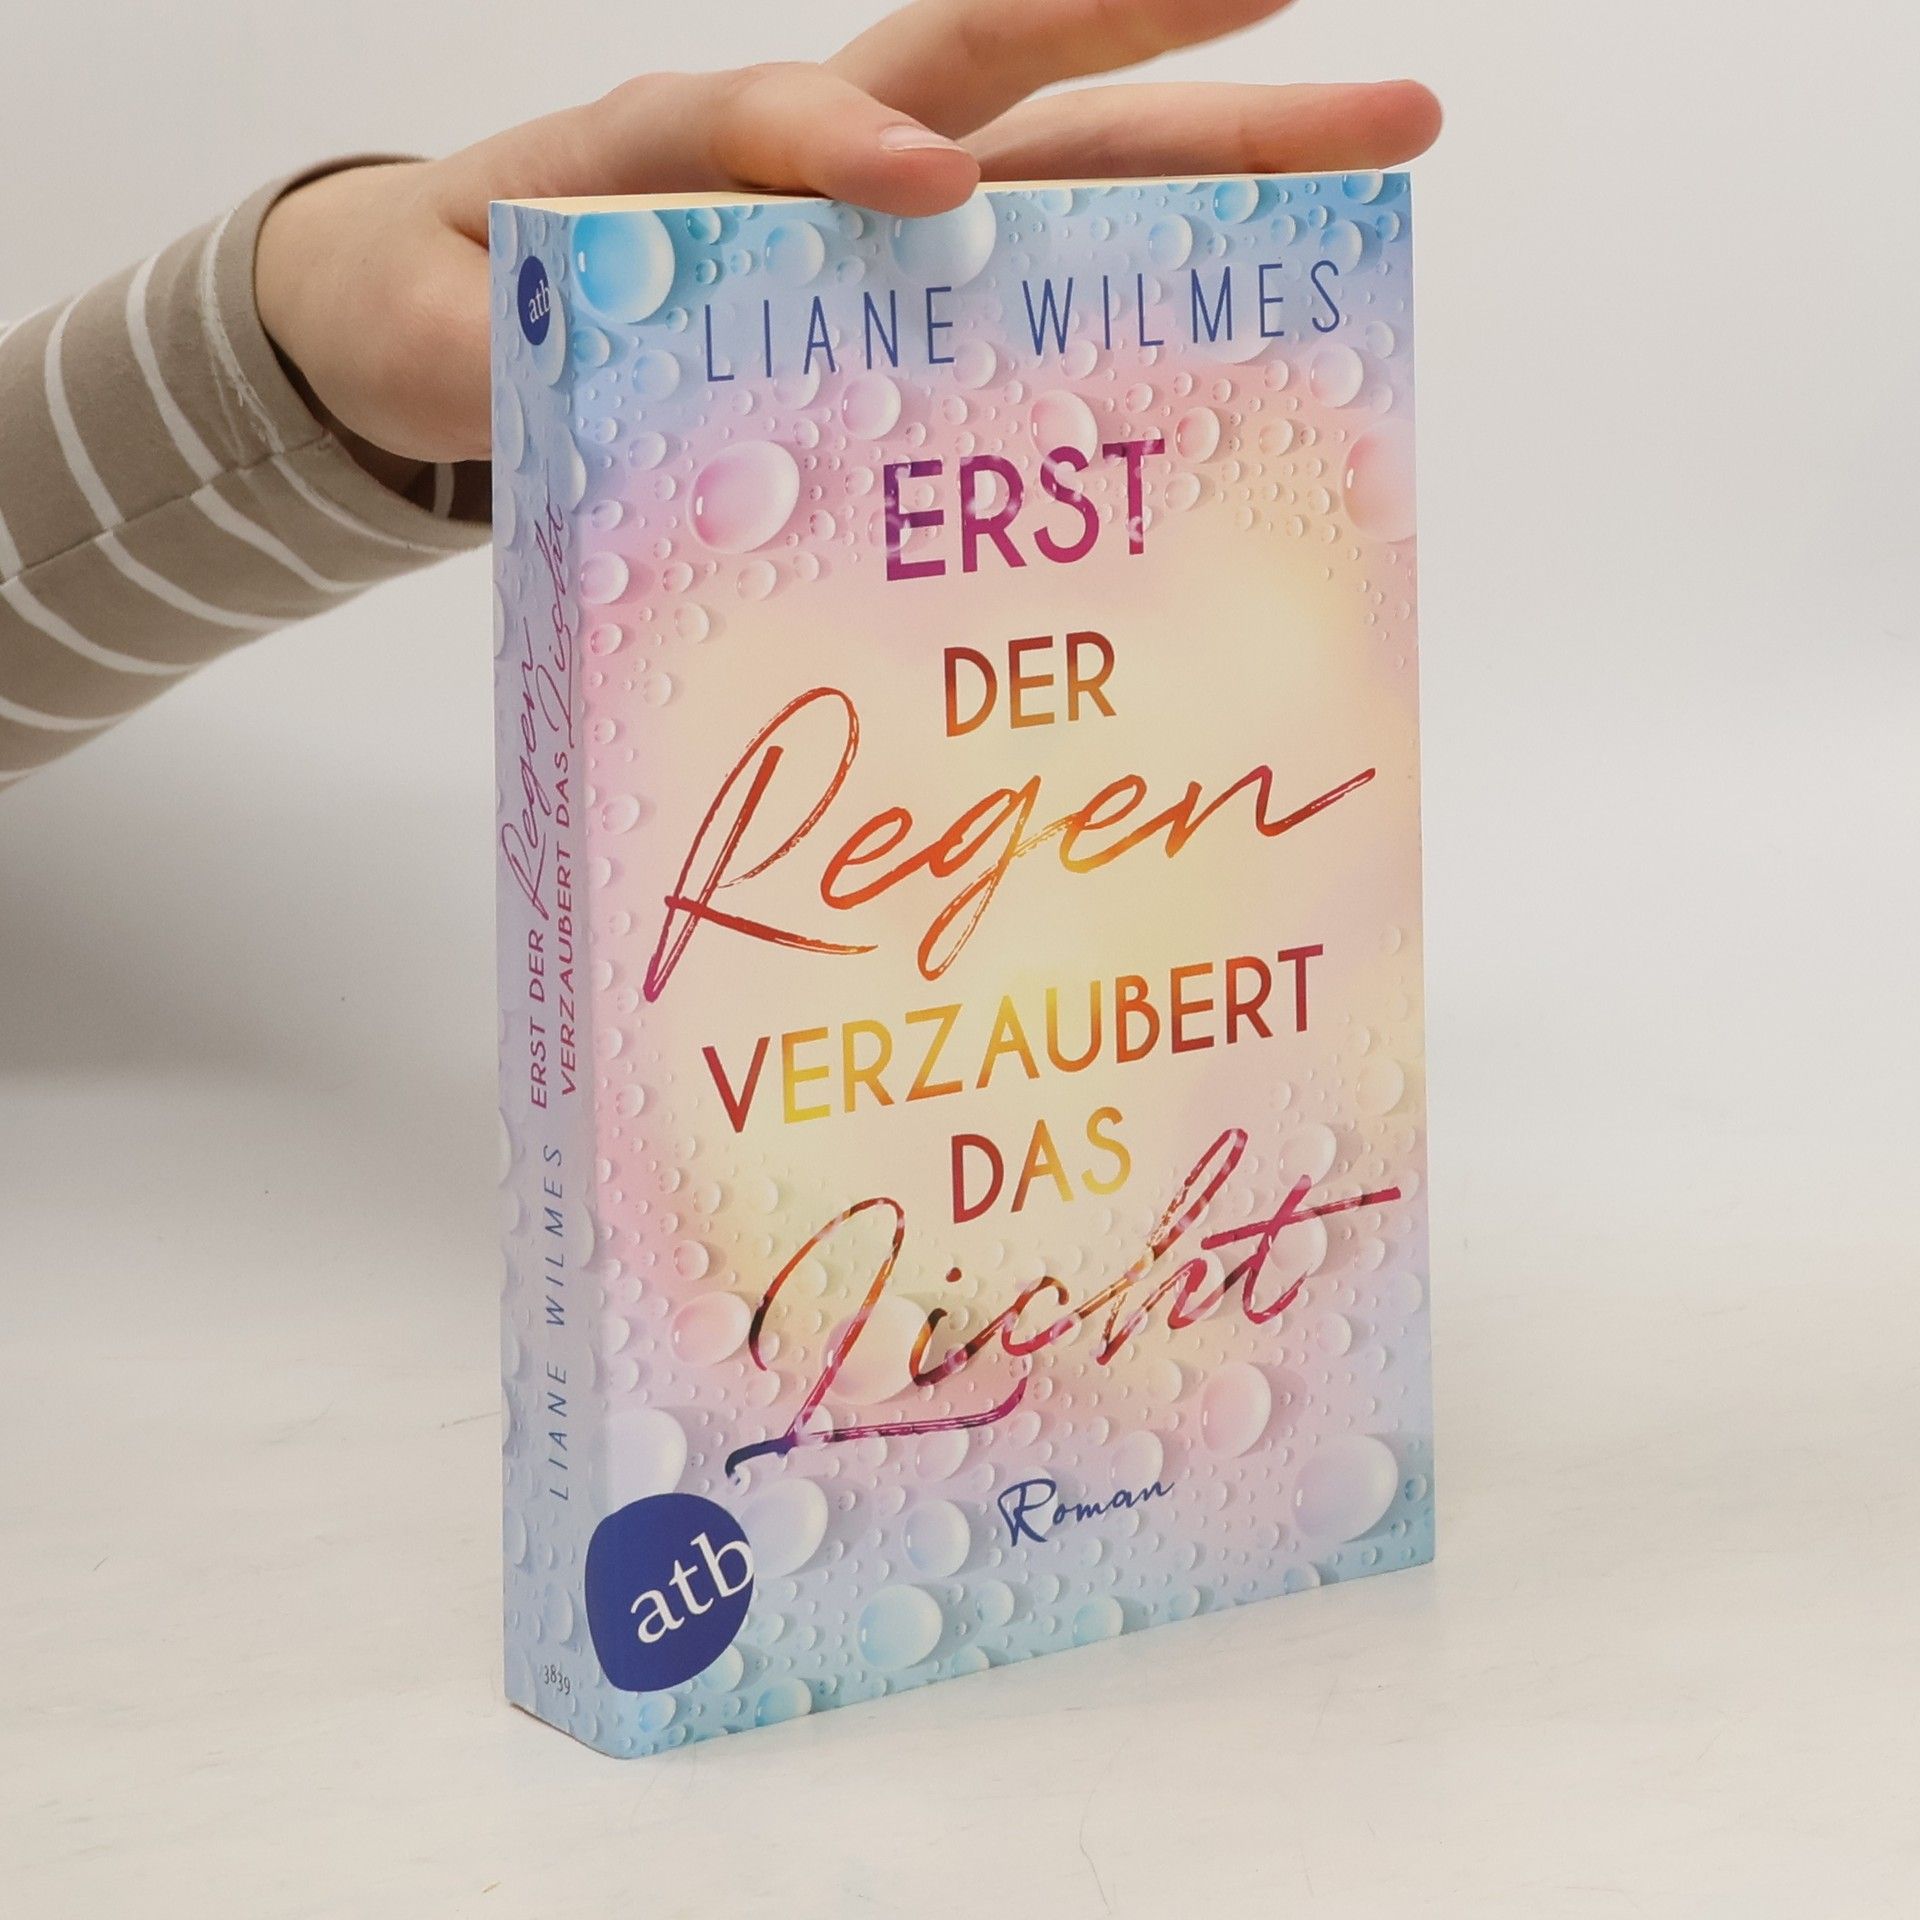 LIANE WILMES
ERST
DER
Regen
VERZAUBERT
DAS
Licht
Roman
atb
atb
ERST DER Regen
VERZAUBERT DAS Licht
LIANE WILMES
3839